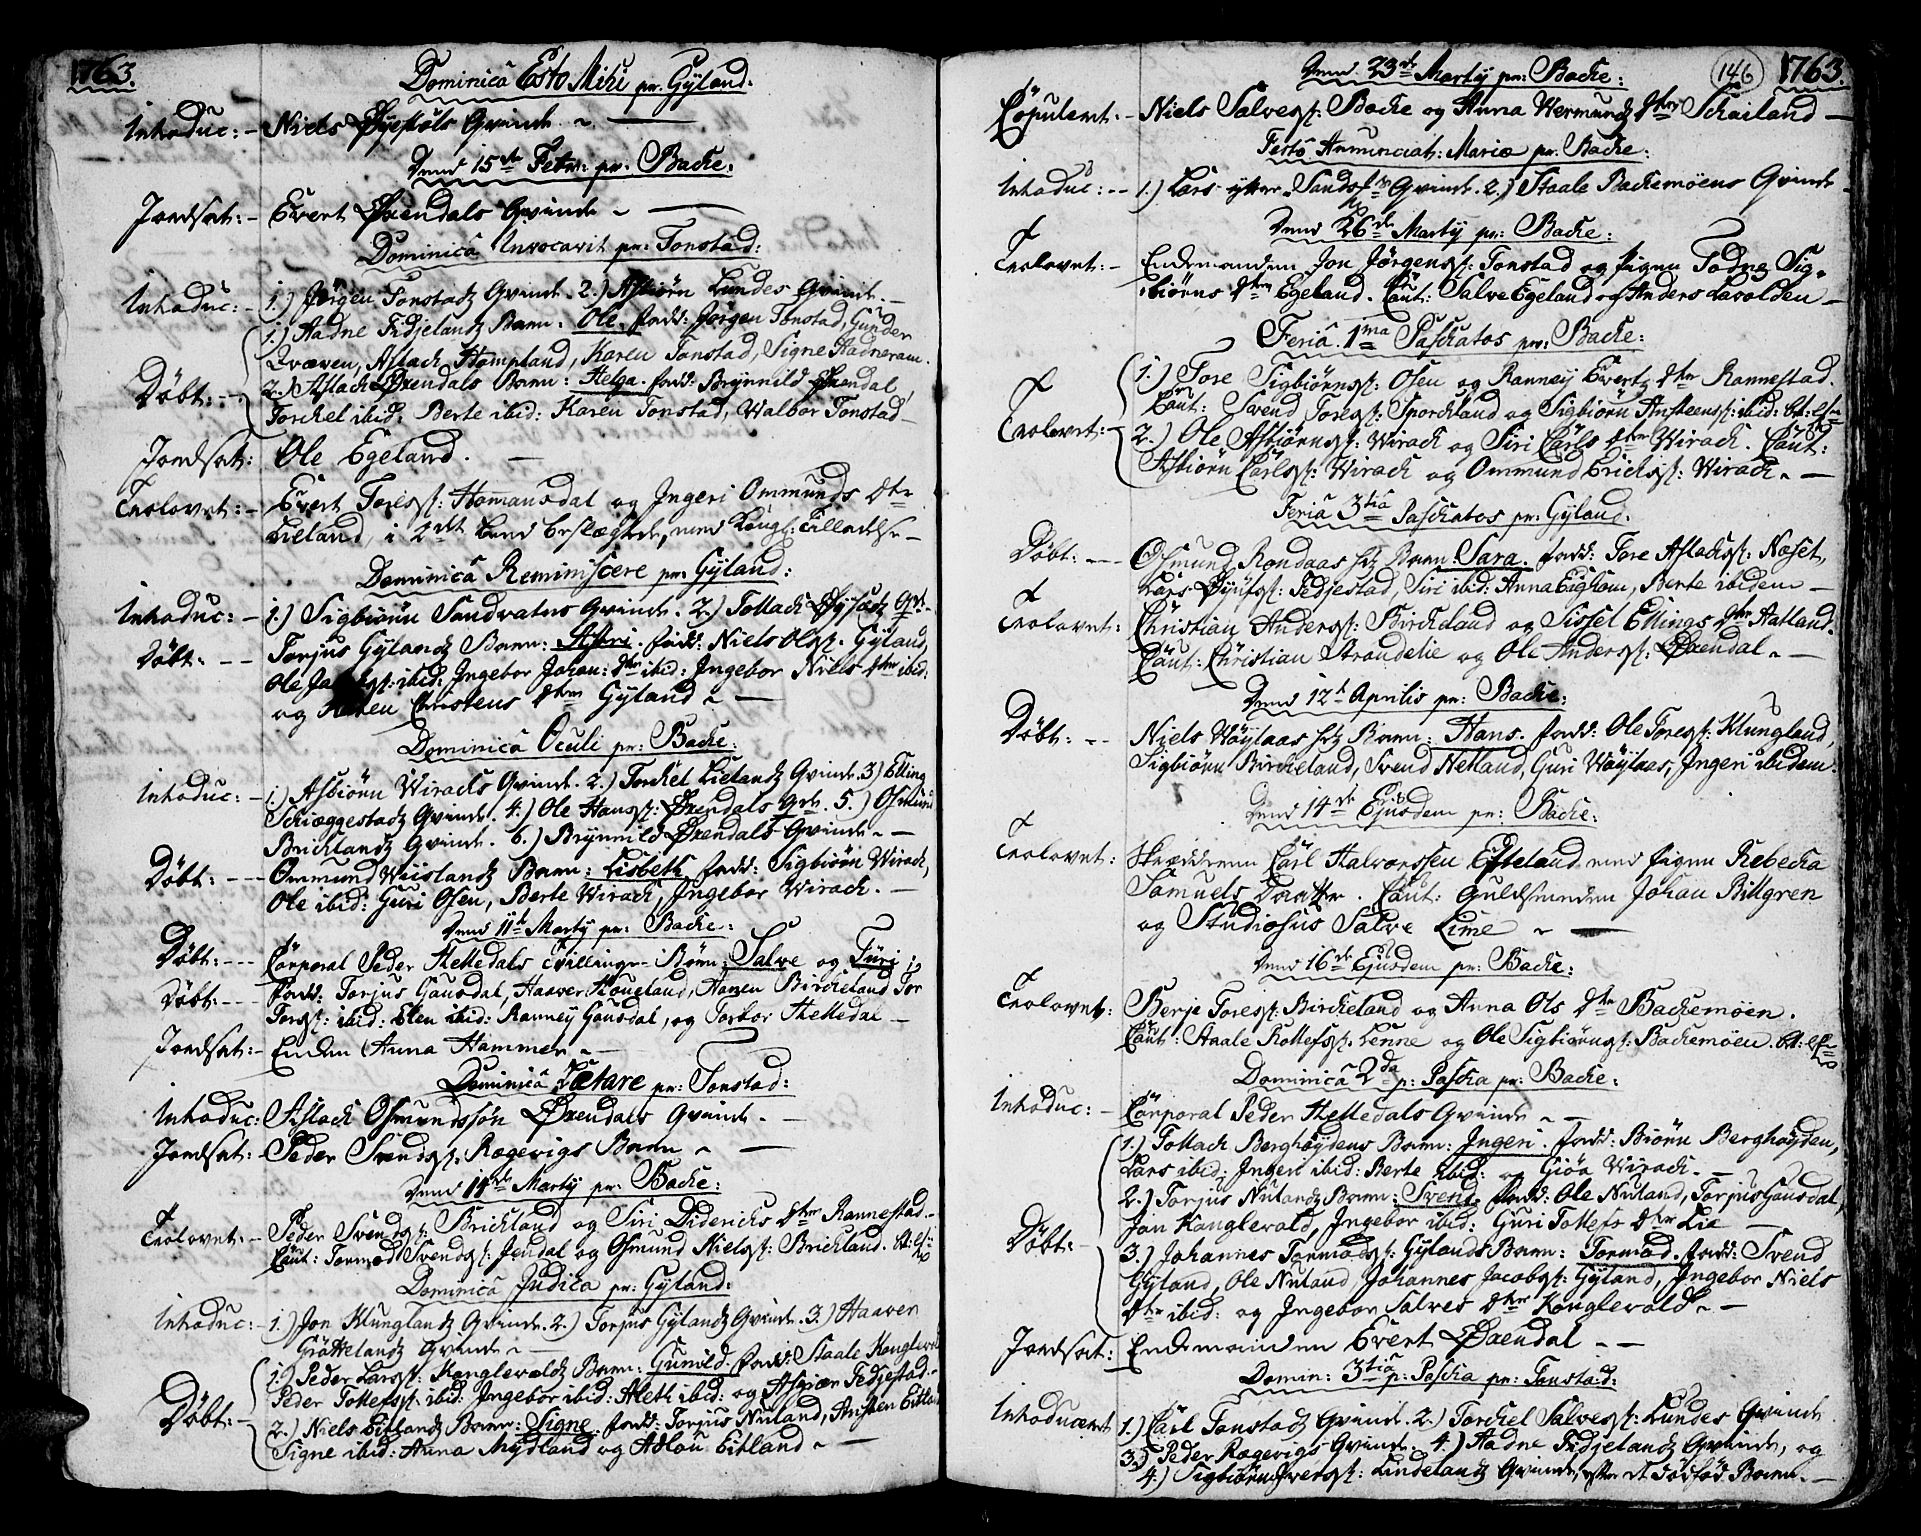 1763.
Dominica Esto Mihi pr. Gyland.
Introduc: – Niels Øyestøls Qvinde ~
Dend 15de Febr: pr. Backe:
Jordsat: – Evert Øxendals Qvinde ~
Dominica Invocavit pr: Tonstad:
Introduc: – 1.) Jörgen Tonstads Qvinde. 2.) Asbiörn Lundes Qvinde. –
1.) Aadne Fidjelands Barn. Ole. fadd: Jörgen Tonstad, Gunder
Qvæven, Aslach Hompland, Karen Tonstad, Signe Aadneram.
Döbt: – 2.) Aslach Øxendals Barn: Helga. fadd: Brynnild Øxendal,
Torchel ibid: Berte ibid: Karen Tonstad, Walbor Tonstad –
Jordsat: Ole Egeland. –
Trolovet: – Evert Toresss: Homansdal og Ingeri Ommunds dtr
Lieland, i 2det Leed beslægtede, med Kongl: Tilladelse –
Dominica Reminiscere pr: Gyland:
Introduc: – 1.) Sigbiörn Sandvatns Qvinde. 2.) Tollach Qvd.
Döbt: – – Torjus Gylands Barn: Astri. fadd: Niels Olss: Gyland,
Ole ibid: Ingebor Johan: dtr ibid: Ingebor Niels dtr ibid:
og Christens dtr Gyland ~ –
Dominica Oculi pr: Backe:
Introduc: – 1.) Asbiörn Wirachs Qvinde. 2.) Torchel Lielands Qvinde. 3) Elling
Schieggestads Qvinde. 4.) Ole Hanss: Øxendals Qvd. 5.) Osmund
Bricklands Qvinde. 6.) Brynnild Øxendals Qvinde ~ –
Döbt: – – Ommund Wiislands Barn: Lisbeth. fadd: Sigbiörn Wirach,
Ole ibid: Guri Osen, Berte Wirach, Ingebor Wirach. –
Dend 11te Martÿ pr: Backe:
Döbt: – – – Corporal Peder Stelledals Tvillinge-Börn: Salve og Turi;
Döbt: – – – fadd: Torjus Gausdal, Haaver Moueland, Hanen Birckeland Tor
Torss: ibid: Elen ibid: Ranney Gausdal, og Torbor Stelledal –
Jordsat: – Enken Anna Hammer ~
Dominica Lætare pr: Tonstad:
Introduc: Aslach Osmundssön Øxendals Qvinde. –
Jordsat: – Peder Svendss: Rægevigs Barn ~ –
Dend 14de Martÿ pr: Backe:
Trolovet: – Peder Svendss: Brickland og Siri Didericks dtr Rannestad. –
Caut: Tormod Svendss: Jendal og Osmund Nielss: Brickland.
Dominica Judica pr: Gyland:
Introduc: – 1.) Jon Klunglands Qvinde. 2.) Torjus Gylands Qvinde. 3.) Haaver
Gröttelands Qvinde ~
1.) Peder Larss: Konglevolds Barn: Gunild. fadd: Staale Konglevol
Peder Tollefss: ibid: Ingebor ibid: Aleth ibid: og Asgier Fedjestad. –
Döbt: – 2.) Niels Eitlands Barn: Signe. fadd: Torjus Nuland, Ansten Eitland
Signe ibid: Anna Mydland og Adlou Eitland ~ –
146
1763.
Dend 23de Martÿ pr: Backe:
Copuleret: – Niels Salvess: Backe og Anna Wermunds dtr Schailand –
Festo Annunciat: Mariæ pr. Backe:
Introduc: – – 1.) Lars ytter Qvinde. 2.) Staale Backemöens Qvinde
Dend 26de Martÿ pr: Backe:
Trolovet: – Enkemanden Jon Jörgenss: Tonstad og Pigen Todne Sig-
biörns dtr Egeland. Caut: Salve Egeland og Anders Lavolden –
Feria 1ma Paschatos pr: Backe:
1.) Tore Sigbiörnss: Osen og Ranney Everts dtr Rannestad.
Caut: Svend Toress: Snorckland og Sigbiörn Anstenss: ibid:
Trolovet: – 2.) Ole Asbiörnss: Wirach og Siri Carls dtr Wirach. Caut:
Asbiörn Carlss: Wirach og Ommund Erichss: Wirach ~ –
Feria 3tia Paschatos pr: Gyland.
Döbt: – – Osmund Rondaas hs Barn Sara. fadd: Tore Aslachss: Næset,
Lars Fedjestad, Siri ibid: Anna EigHom, Berte ibidem –
Trolovet: Christian Anderss: Birckeland og Sissel Ellings dtr Aatland.
Caut: Christian Strandelie og Ole Anderss: Øxendal ~ –
Dend 12te Aprilis pr: Backe:
Döbt: – – Niels Wöylaas hs Barn: Hans. fadd: Ole Toress: Klungland,
Sigbiörn Birckeland, Svend Netland, Guri Wöylaas, Ingeri ibidem.
Dend 14de Ejusdem pr: Backe:
Trolovet: Skrædderen Carl Halvorssen Efteland med Pigen Rebecka
Samuels Daatter. Caut: Guldsmeden Johan Billgren
og Studiosus Salve Lime ~ –
Dend 16de Ejusdem pr: Backe:
Trolovet: Berje Toress: Birckeland og Anna Ols dtr Backemöen.
Caut: Staale Rollefss: Lenne og Ole Sigbiörnss: Backemöen.
Dominica 2da p: Pascha pr: Backe:
Introduc: – Corporal Peder Stelledals Qvinde ~ –
1.) Tollach Berghöydens Barn: Ingeri. fadd: Biörn Berghöyden,
Lars ibid: Ingeri ibid: Berte ibid: og Giöa Wirach. –
2.) Torjus Nulands Barn: Svend. fadd: Ole Nuland, Torjus Gausdal,
Jon Konglevold, Ingebor ibid: Guri Tollefs dtr Lie –
Döbt: – 3.) Johannes Tormodss: Gylands Barn: Tormod. fadd: Svend
Gyland, Ole Nuland, Johannes Jacobss: Gyland, Ingebor Niels
dtr ibid: og Ingebor Salves dtr Konglevold ~ –
Jordsat: Enkemanden Evert Øxendal – –
Domin: 3tia p: Pascha pr: Tonstad:
Introduceret 1.) Carl Tonstads Qvinde. 2.) Torchel Salvess: Lundes Qvinde.
3.) Peder Rægevigs Qvinde. 4.) Aadne Fidjelands Qvinde, og
4.) Sigbiörn Iverss: Lindelands Qvinde, efter et dödföd Barn. –